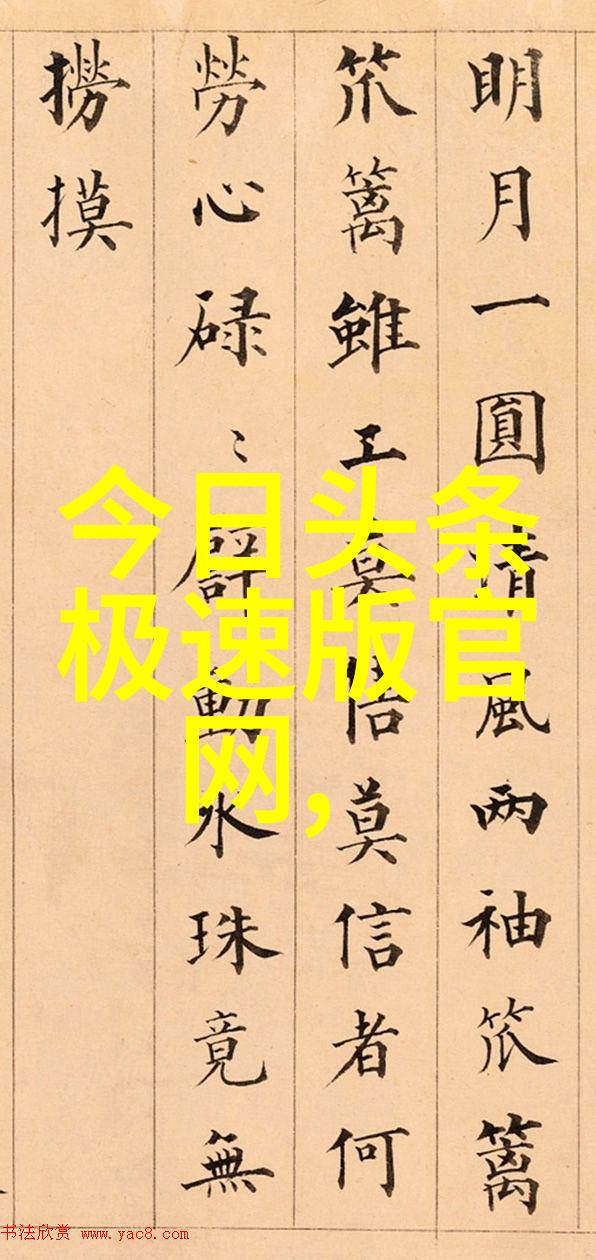 明月一圓清風两袖笊篱
笊篱雖工莫悟莫信者何
勞心碌〻劈動水珠竟無
撈摸
今日头条
极速版官
网,
书法欣赏 www.yac8.com